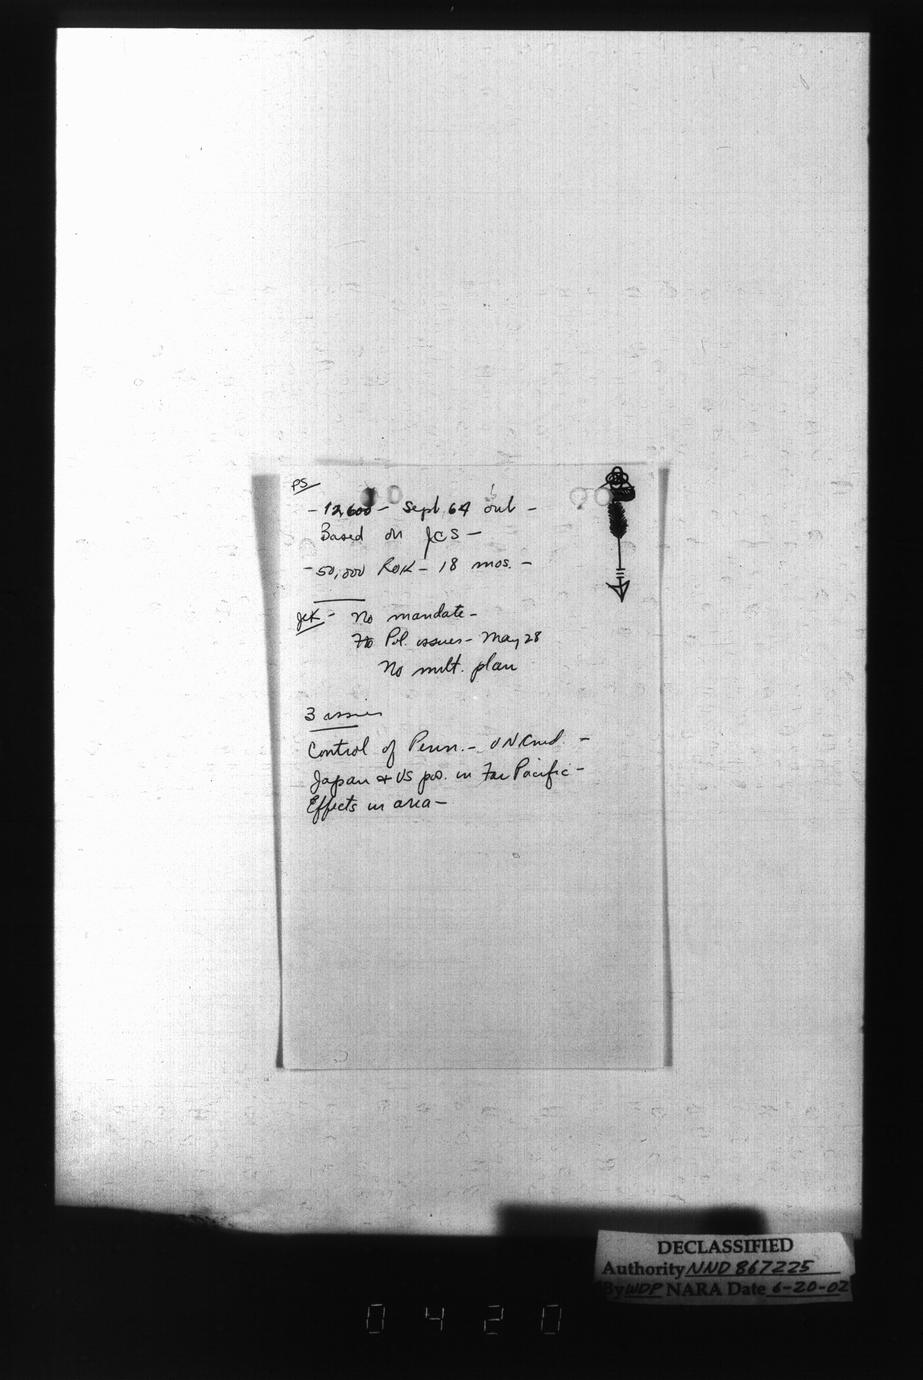 PS
- 12,600 - Sept 64 out -
Based on JCS -
- 50,000 ROK - 18 mos. -
JCK - No mandate -
Pol. issues - May 28
No milt. plan
3
Control of Penn. - UN Cmd. -
Japan & US pos. in Far Pacific -
Effects in area -
DECLASSIFIED
Authority NND 867225
By WDP NARA Date 6-20-02
0420